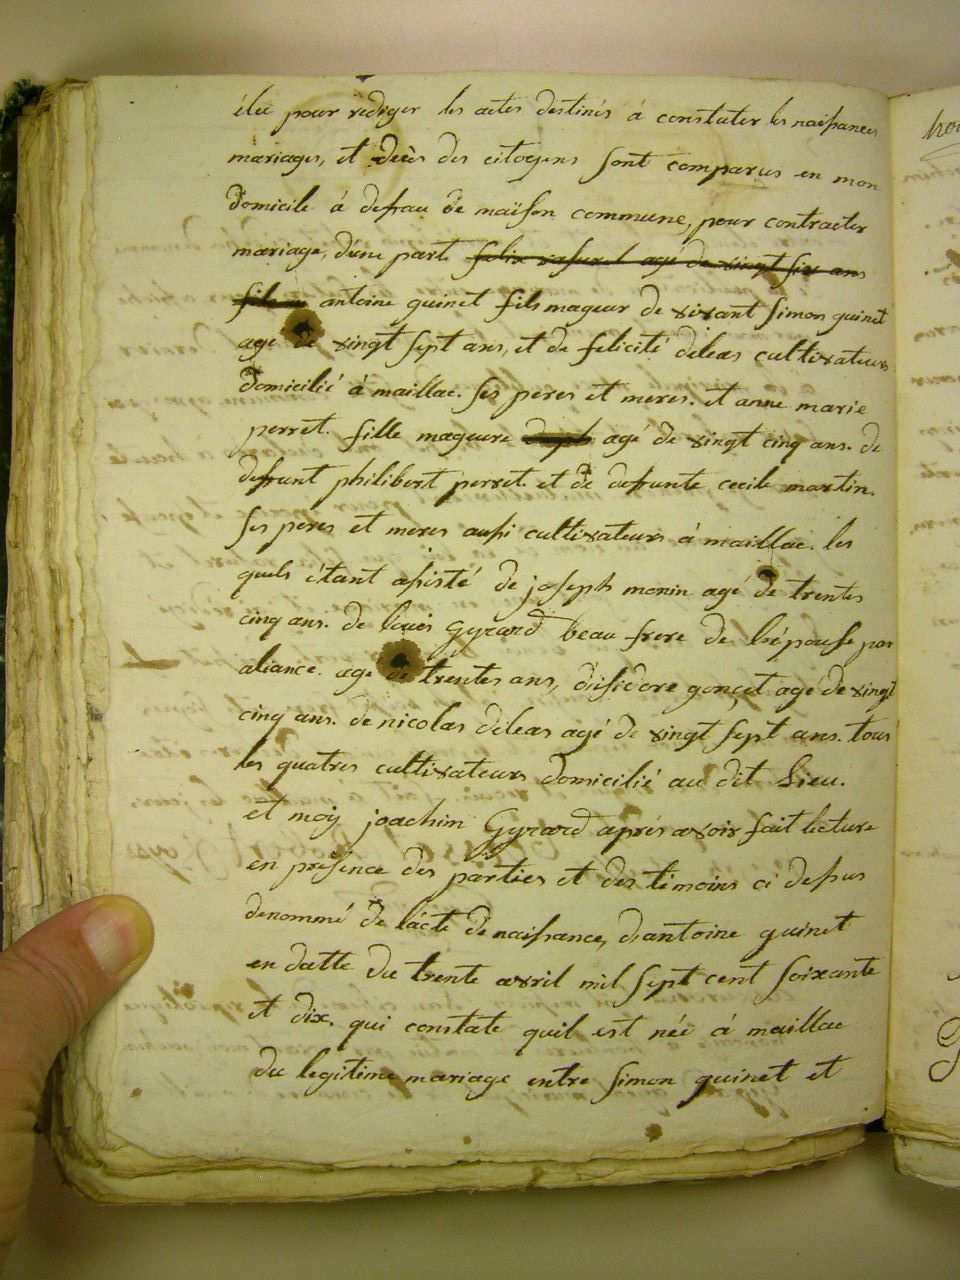 élu pour rediger les actes destinés á constater les naissances
mariages, et décès des citoyens sont comparus en mon
domicile á defrau de maison commune, pour contracter
mariage, d'une part felix agé de vingt six ans
fils antoine guinet fils mageur de vivant simon guinet
agé de vingt sept ans, et de felicité deleas cultivateurs
domicilié á maillac. ses peres et meres. et anne marie
perret. fille mageure agé de vingt cinq ans. de
defrunt philibert perret. et de defrunte cecile martin.
ses peres et meres aussi cultivateurs á maillac. les
quels étant assisté de joseph monin agé de trentes
cinq ans. de louis Gyrard beau frere de lrépouse par
aliance. age de trentes ans, d'isidore gonçet agé de vingt
cinq ans. de nicolas deleas agé de vingt sept ans. tous
les quatres cultivateurs domicilié au dit Lieu.
et moÿ joachim Gyrard aprés avoir fait lecture
en présence des parties et des témoins ci dessus
denommé de lácte de naissance, d'antoine guinet
en datte du trente avril mil sept cent soixante
et dix. qui constate quil est née á maillac
du legitime mariage entre simon guinet et